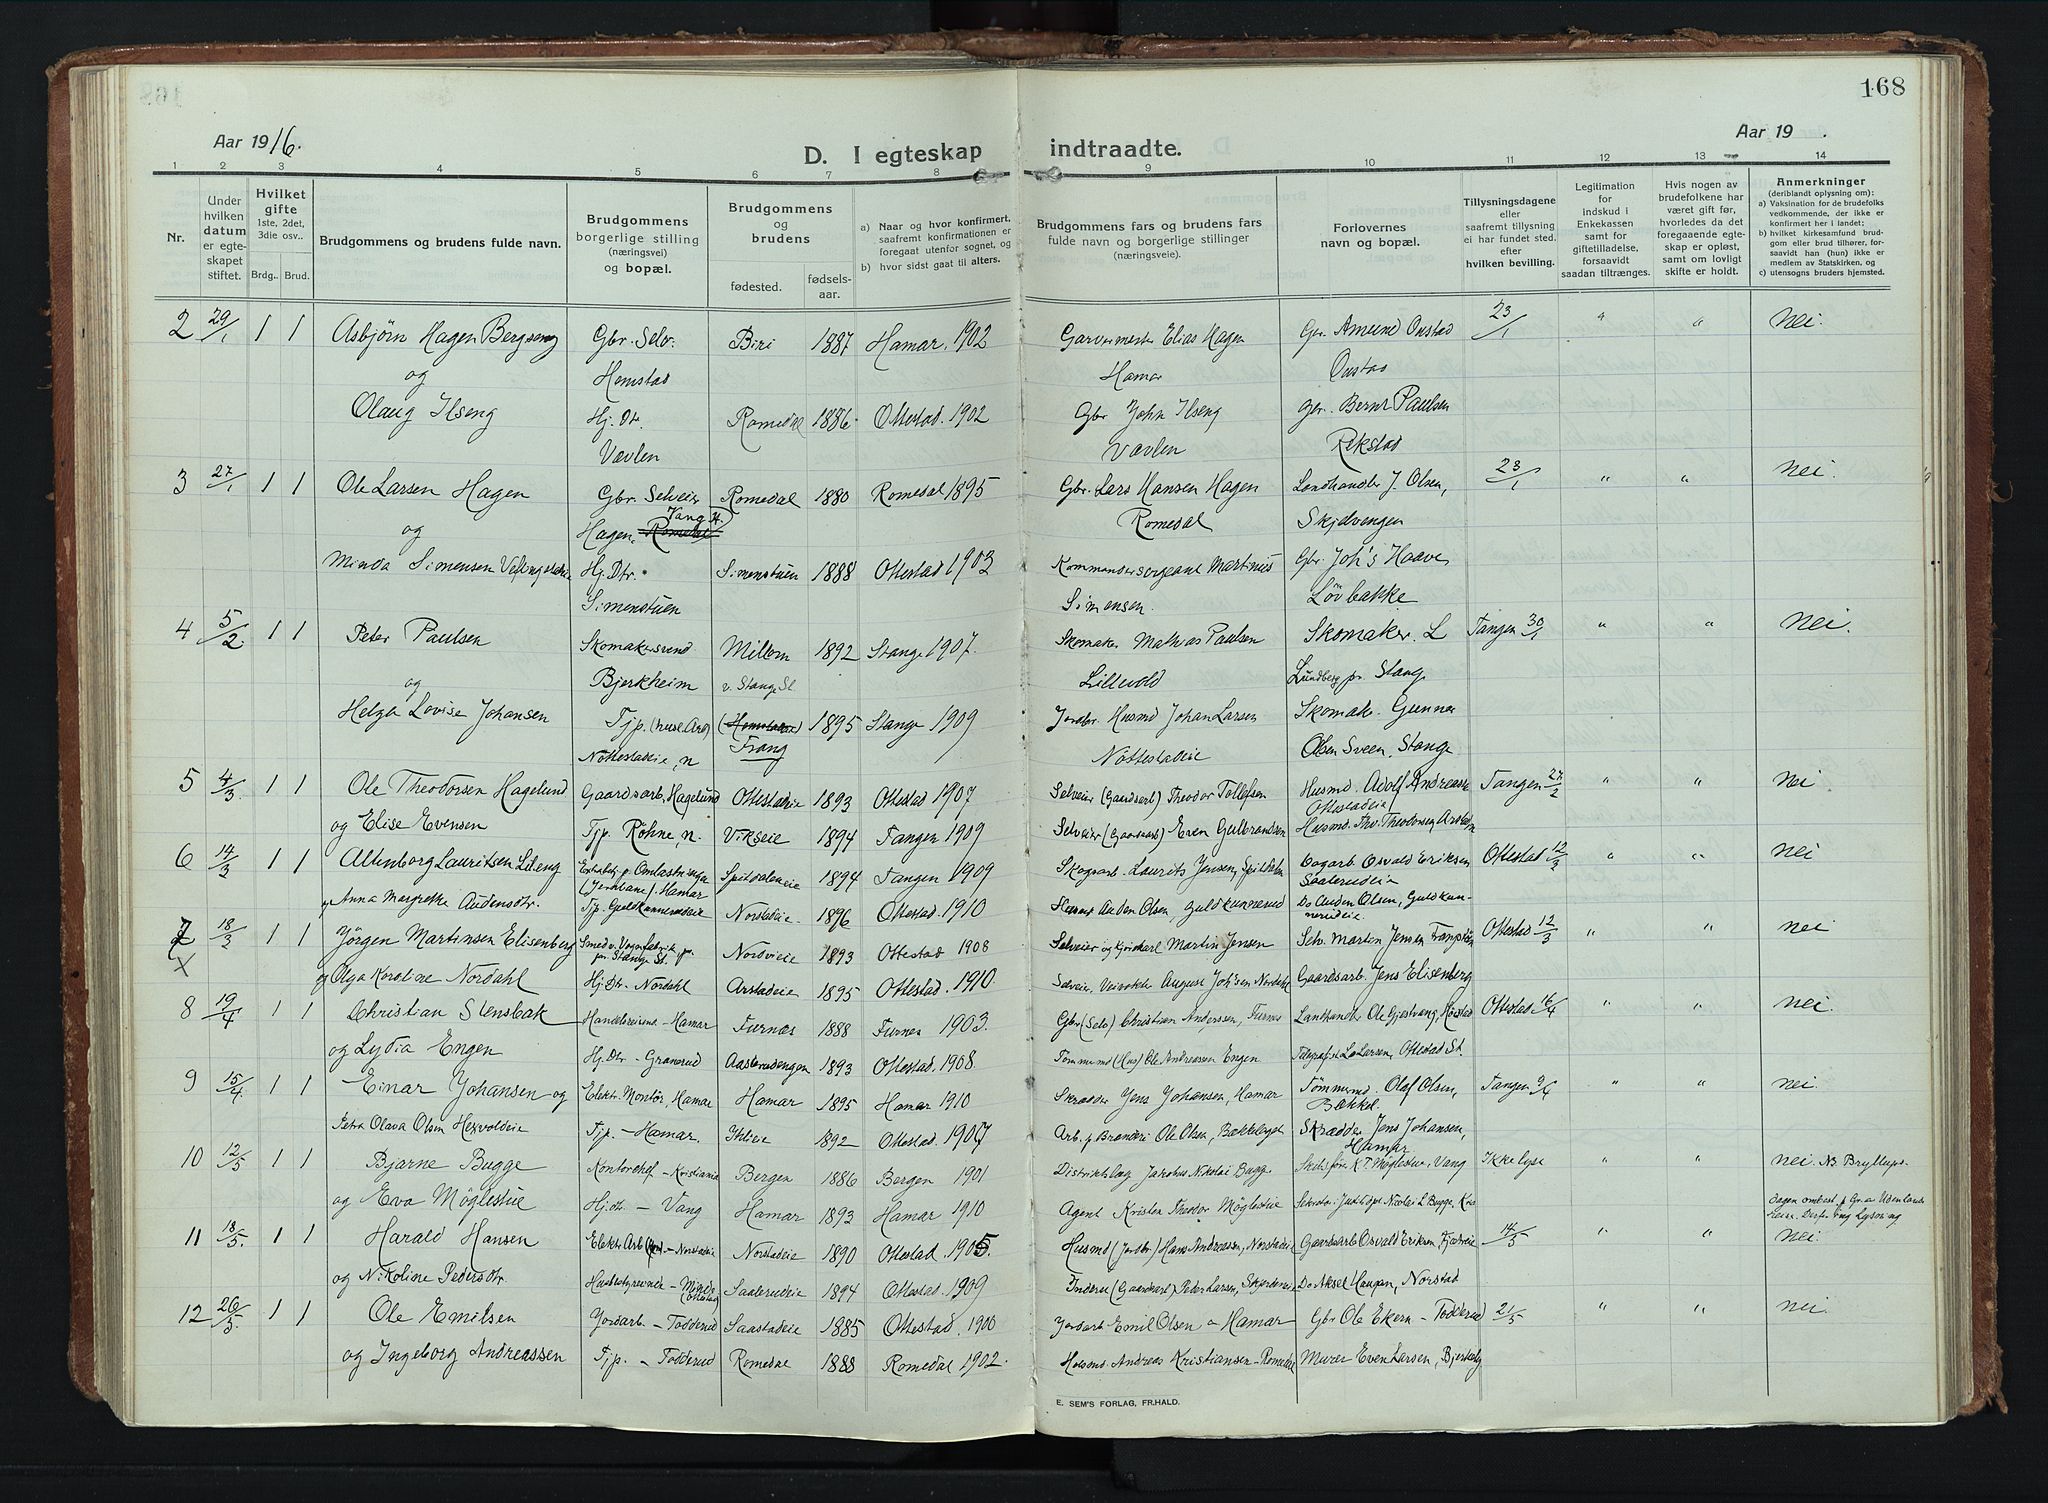 168
Aar 1916.
Aar 19 .
D. I egteskap indtraadte.
1 2 3 4 5 6 7 8 9 10 11 12 13 14
Nr.
Under hvilken datum er egteskapet stiftet.
Hvilket gifte 1ste, 2det, 3die osv..
Brdg. Brud.
Brudgommens og brudens fulde navn.
Brudgommens borgerlige stilling (næringsvei) og bopæl.
Brudgommens og brudens
fødested. fødsels-aar.
a) Naar og hvor konfirmert, saafremt konfirmationen er foregaat utenfor sognet, og
b) hvor sidst gaat til alters.
Brudgommens fars og brudens fars fulde navn og borgerlige stillinger (næringsveie).
Forlovernes navn og bopæl.
Tillysningsdagene eller saafremt tillysning ei har fundet sted. efter hvilken bevilling.
Legitimation for indskud i Enkekassen samt for giftetilladelse, forsaavidt saadan tiltrænges.
Hvis nogen av brudefolkene har været gift før, hvorledes da det foregaaende egteskap er opløst, samt om lovligt skifte er holdt.
Anmerkninger (deriblandt oplysning om):
a) Vaksination for de brudefolks vedkommende, der ikke er konfirmert her i landet;
b) hvilket kirkesamfund brudgom eller brud tilhører, forsaavidt han (hun) ikke er medlem av Statskirken, og
c) utensogns bruders hjemsted.
2 29/1 1 1 Asbjørn Hagen Bergseng Gbr. Selv. Biri 1887 Hamar. 1902 Garvermester Elias Hagen Gbr. Amund Onstad 23/1 " " Nei.
og Hemstad Hamar Onstad
Olaug Ilseng Hj. Dtr. Romedal 1886 Ottestad. 1902 Gbr John Ilseng Gbr. Bernt Paulsen
Vævlen Vævlen Rekstad
3 27/1 1 1 Ole Larsen Hagen Gbr. Selveier Romedal 1880 Romedal 1895 Gbr. Lars Hansen Hagen Landhandler J. Olsen, 23/1 " " Nei.
og Hagen, Vang H. Romedal Romedal Skjelvengen
Minda Simensen Hj. Dtr. Simenstuen 1888 Ottestad 1903 Kommandersergeant Martinius Gbr. Joh's Haave
Simenstuen Simensen. Løvbakke
4 5/2 1 1 Peter Paulsen Skomakersvend Millom 1892 Stange 1907. Skomaker Mathias Paulsen Skomaker. L Tangen 30/1 " " Nei.
og Bjerkheim v. Stange St. Lillevold Lundberg pr Stange
Helga Lovise Johansen Tjp. (huse. Arb) 1895 Stange 1909 Jordbr. Husmd Johan Larsen Skomak. Gunnar
Nøttestadeie, n Frang Nøttestadeie Olsen Sveen, Stange
5 4/3 1 1 Ole Theodorsen Hagelund Gaardsarb, Hagelund Ottestadeie 1893 Ottestad 1907 Selveier (Gaardsarb) Theodor Tollefsen Husmd. Adolf Andreassen Tangen 27/2 " " Nei
Ottestadeie
og Elise Evensen Tjp. Røhne, n. Vikseie 1894 Tangen 1909 Selveier (Gaardsarb) Even Gulbrandsen Husmd. Thv. Theodorsen
6 14/3 1 1 Altenborg Lauritsen Lileng Hamar 1894 Tangen 1909 Skogsarb. Laurits Jensen, Osvald Eriksen Ottestad 12/3 " " Nei
Saalerudeie
og Anna Margrethe Audensdtr. Tjp. Nordstadeie 1896 Ottestad 1910 Husmd Auden Olsen, Guldkunnerud Do Auden Olsen, Guldkunnerudeie
7 18/3 1 1 Jørgen Martinsen Elisenberg Smed v. Vognfabrik pr. Stange St. Nordvieie 1893 Ottestad 1908 Selveier og Martin Jensen Selv. Martin Jensen Ottestad 12/3 " " Nei
X og Olga Karoline Nordahl Hj. Dtr. Nordahl Arstadeie 1895 Ottestad. 1910. Selveier, Veivokter August Joh'sen Nordahl Gaardsarb. Jens Elisenberg
8 19/4 1 1 Christian Stensbak Handelsreisende - Hamar Furnes 1888 Furnes 1903. Gbr (Selv) Christian Anderssen, Furnes Landhandler Ole Gjestvang, Ottestad 16/4 " " Nei.
og Lydia Engen Hj. Dtr - Granerud Aaslerudengen 1893 Ottestad. 1908. Tømmermd (Hus) Ole Andreassen Engen Telegrafist L. Larsen, Ottestad St.
9 15/4 1 1 Einar Johansen og Elektr. Montør, Hamar Hamar 1895 Hamar 1910 Skrædder Jens Johansen, Hamar Tømmermd. Olaf Olsen, Tangen 9/4 " " Nei.
Bækkel.
Petra Olava Olsen Hervoldeie Tjp. - Hamar. 1892 Ottestad. 1907 Arb. p Brænderi Ole Olsen, Skrædder Jens Johansen,
Hamar
10 12/5 1 1 Bjarne Bugge Kontorchef - Kristiania Bergen 1886 Bergen 1901 Jakobus Nikolai Bugge K. T. Møglestue, Vang Ikke lyst " " Nei. NB. Bryllups-
og Eva Møglestue Hj. dtr. - Vang Hamar 1893 Hamar 1910 Agent Kristen Theodor Møglestue Nicolai L Bugge, Kra dagen ombest. p Gr. a Udenlands
reise. Derfor ing Lysning
11 18/5. 1 1 Harald Hansen Elektr. Arb - Norstadeie Norstadeie 1890 Ottestad 1905. Husmd (Jordbr) Hans Andreassen, Norstadeie Gaardsarb Osvald Eriksen, 14/5 " " Nei.
og Nikoline Pedersdtr. Husbestyrerinde - Ottestad Saalerudeie 1894 Ottestad 1909 Inderst (Gaardsarb) Peter Larsen, Do Aksel Haugan, Norstad
12 26/5 1 1 Ole Emilsen Jordarb. - Tødderud Saastadeie 1885 Ottestad. 1900 Jordarb Emil Olsen - Hamar Gbr Ole Ekern - Tødderud 21/5 " " Nei.
og Ingeborg Andreassen Tjp. - Tødderud Romedal 1888 Romedal 1902. Husmd. Andreas Kristiansen - Romedal Murer Even Larsen,
E. SEM'S FORLAG, FR.HALD.